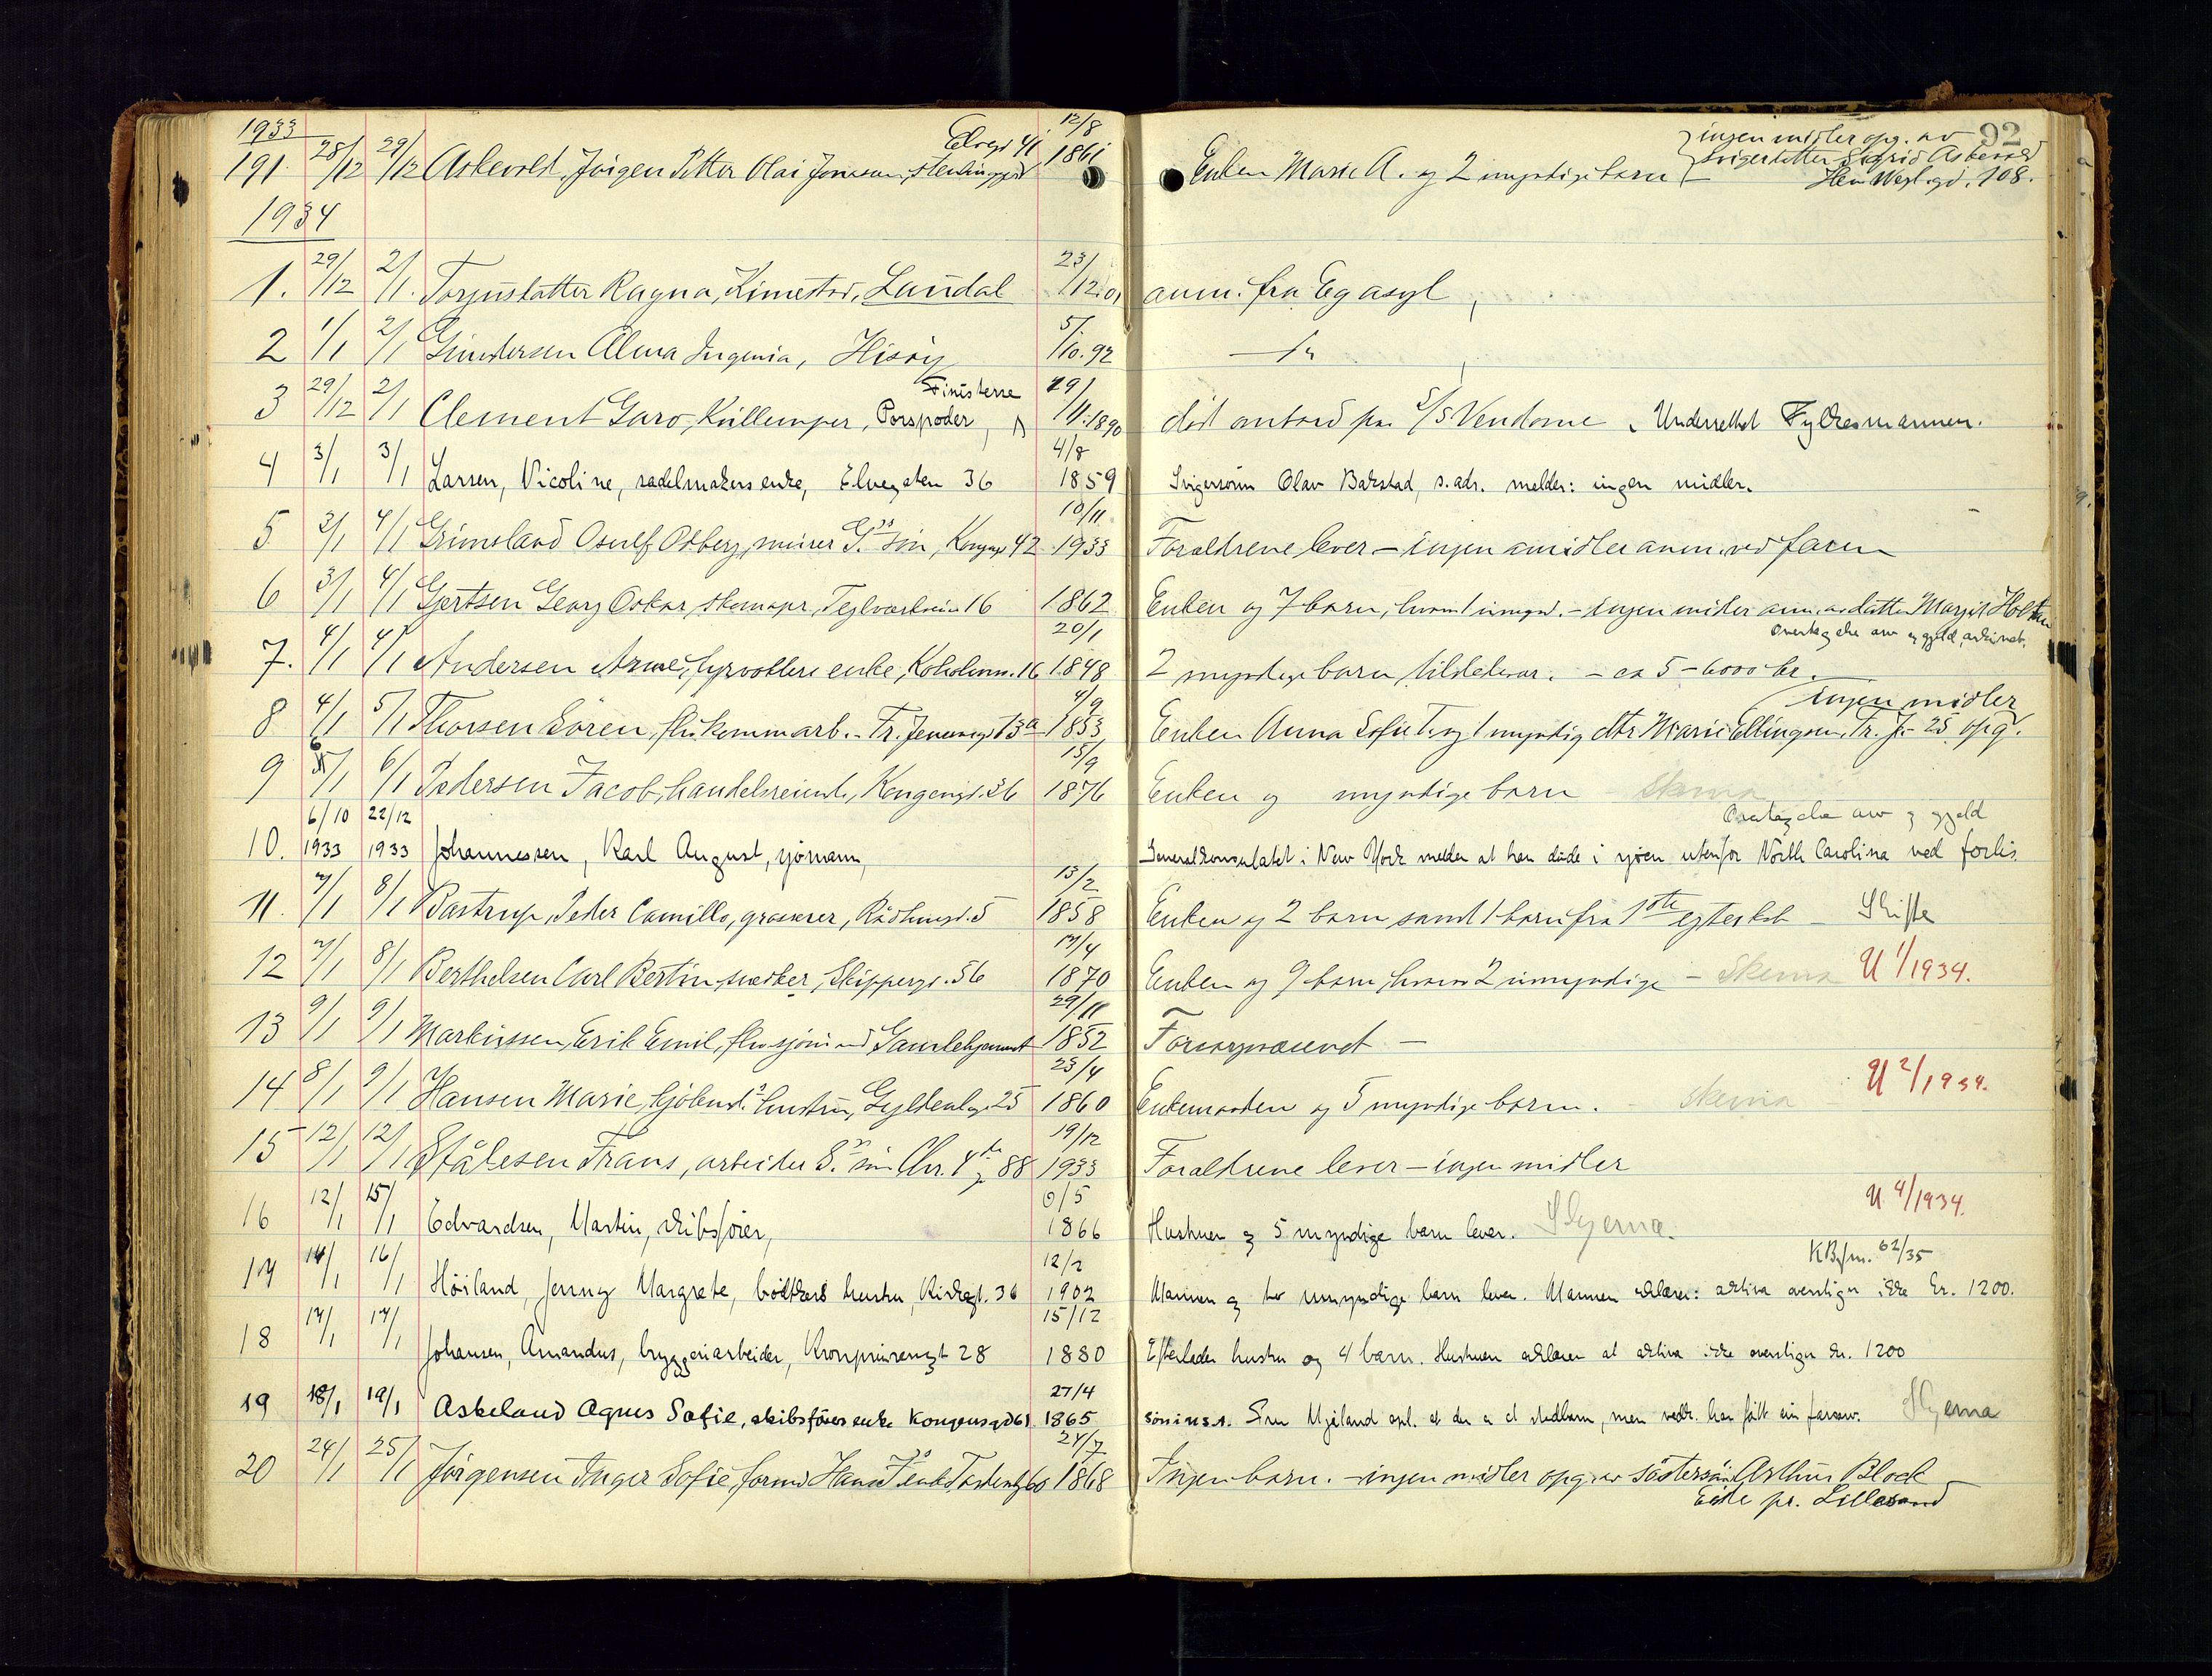 92
1933
191. 28/12 29/12 Askevold, Jörgen Petter Olai Jonassen, Elvegt 41 12/8 1861 Enken Marie A. og 2 myndige barn
ingen midler opg. av
svigerdatter Sigrid Askevold
Hen. Wergl. gd. 108.
1934
1. 29/12 2/1. Torjusdatter Ragna, Kimestad, Laudal 23/12.01 anm. fra Eg asyl
2 1/1 2/1 Gundersen Alma Ingenia, Hisöy 5/10.92
3 29/12 2/1 Clement Garo, Kullemper, Porspoder, Finisterre 29/11.1890 död ombord paa S/S Vendome. Underrettet Fylkesmannen.
4 3/1 3/1 Larsen, Nicoline, sadelmakers enke, Elvegaten 36 4/8 1859 Svigersönn Olav Bakstad, s. adr. melder: ingen midler.
5 3/1 4/1 Grimsland Osulf Osberg, murer G.s sön, Kongsgt 42 10/11 1933 Foraldrene lever – ingen midler anm. ved faren
6 3/1 4/1 Gjertsen Georg Oskar, skomaker, Teglverksvein 16 1862 Enken og 7 barn, hvorav 1 umynd. – ingen midler anm. av datter Margit Holthe
7. 4/1 4/1 Andersen Anne, fyrvokters enke, Kokolum. 16 20/1 1848 2 myndige barn tilstede var. – ca 5–6000 kr.
Overtagelse arv og gjeld
8 4/1 5/1 Thorsen Sören, fhv kommarb. – Fr. Jensensgt 13a 4/9 1853 Enken Anna Sofie T. og 1 myndig dtr Marie Ellingsen, Fr. J. 25 opg.
ingen midler
9 6/1 6/1 Pedersen Jacob, handelsreisende, Kongensgt. 36 15/9 1876 Enken og myndige barn skema
Overtagelse arv og gjeld
10. 6/10 1933 22/12 1933 Johannessen, Karl August, sjömann, Generalkonsulatet i New York melder at han döde i sjöen utenfor North Carolina ved forlis
11. 7/1 8/1 Bastrup, Peder Camillo, grosserer, Rådhusgt. 5 13/2 1858 Enken og 2 barn samt 1 barn fra 1ste egteskab – Skifte
12 7/1 8/1 Berthelsen Carl Bertin snedker, Skippergt. 56 17/4 1870 Enken og 9 barn, hvorav 2 umyndige – Skema U 1/1934.
13 9/1 9/1 Markussen, Erik Emil, fhv sjömand Gamlehjemmet 29/11 1852 Forsorgsvæsenet –
14 8/1 9/1 Hansen Marie, kjöbmd. hustru, Gyldenlg. 25 25/4 1860 Enkemanden og 5 myndige barn. skema U 2/1934.
15 12/1 12/1 Ståkesen Frans, arbeider S.s sön Chr. 4de g 88 19/12 1933 Foraldrene lever – ingen midler
16 12/1 15/1 Edvardsen, Martin, skibsfører, 9/5 1866 Hustruen og 5 myndige barn lever. Skjema. U. 4/1934.
17 14/1 16/1 Höiland, Jenny Margrete, bödkers hustru, Kirkegt. 36 12/2 1902 Mannen og tre umyndige barn lever. Mannen erklærer: aktiva overstiger ikke kr. 1200.
62/35
18 17/1 17/1 Johansen, Amandus, bryggeriarbeider, Kronprinsensgt 28 15/12 1880 Efterlader hustru og 4 barn. Hustruen erklærer at aktiva ikke overstiger kr. 1200
19 18/1 19/1 Askeland Agnes Sofie, skibsförers enke Kongensgd 61 27/4 1865 Fru Mjåland opl. at der er et stedbarn, men vedk. har fått sin farsarv. Skjema
20 24/1 25/1 Jörgensen Inger Sofie, formd Hans J.s enke Tordenskg 60 24/7 1868 Ingen barn. – ingen midler opg. av söstersön Arthur Block
Eide pr. Lillesand